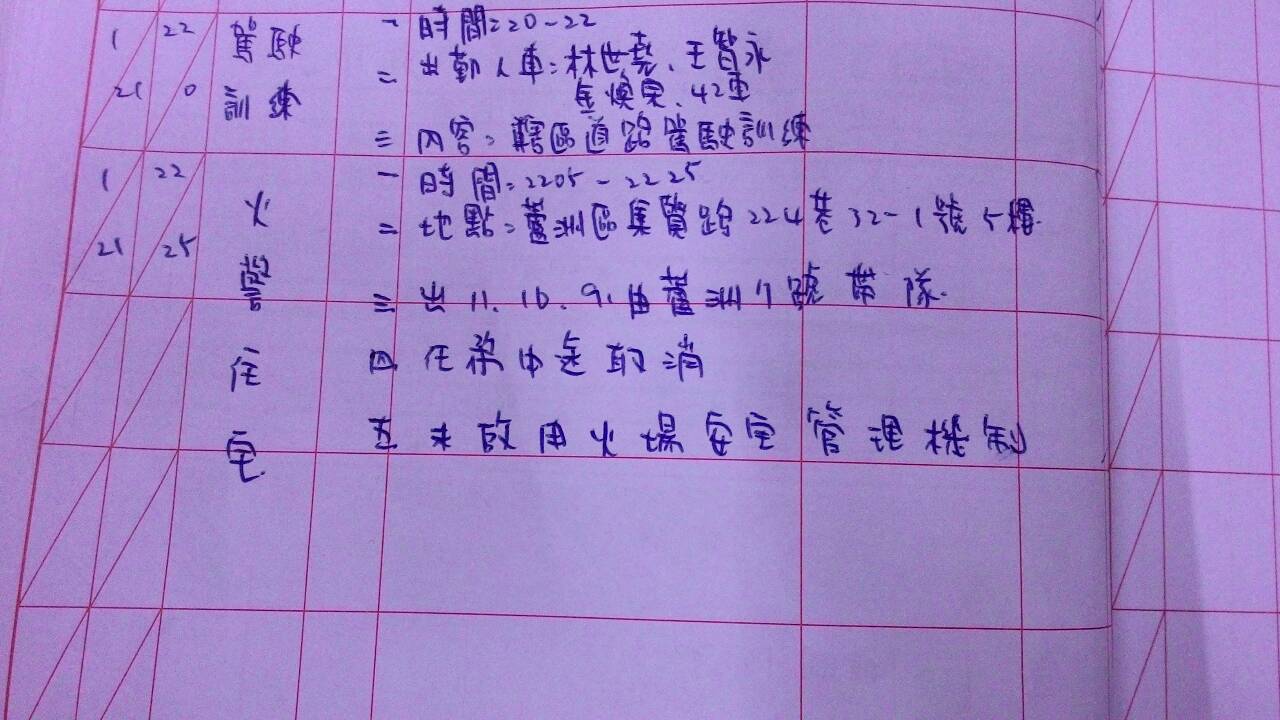 1 22 駕駛 一 時間:20-22
21 0 訓練 二 出勤人車:林世堯、王智永
金煥杲、42車
三 內容:轄區道路駕駛訓練
1 22 火 一 時間:2205-2225
21 25 二 地點:蘆洲區集賢路224巷32-1號5樓.
警 三 出11.16.91由蘆洲 號帶隊.
住 四 任務中途取消
宅 五 未啟用火場安全管理機制